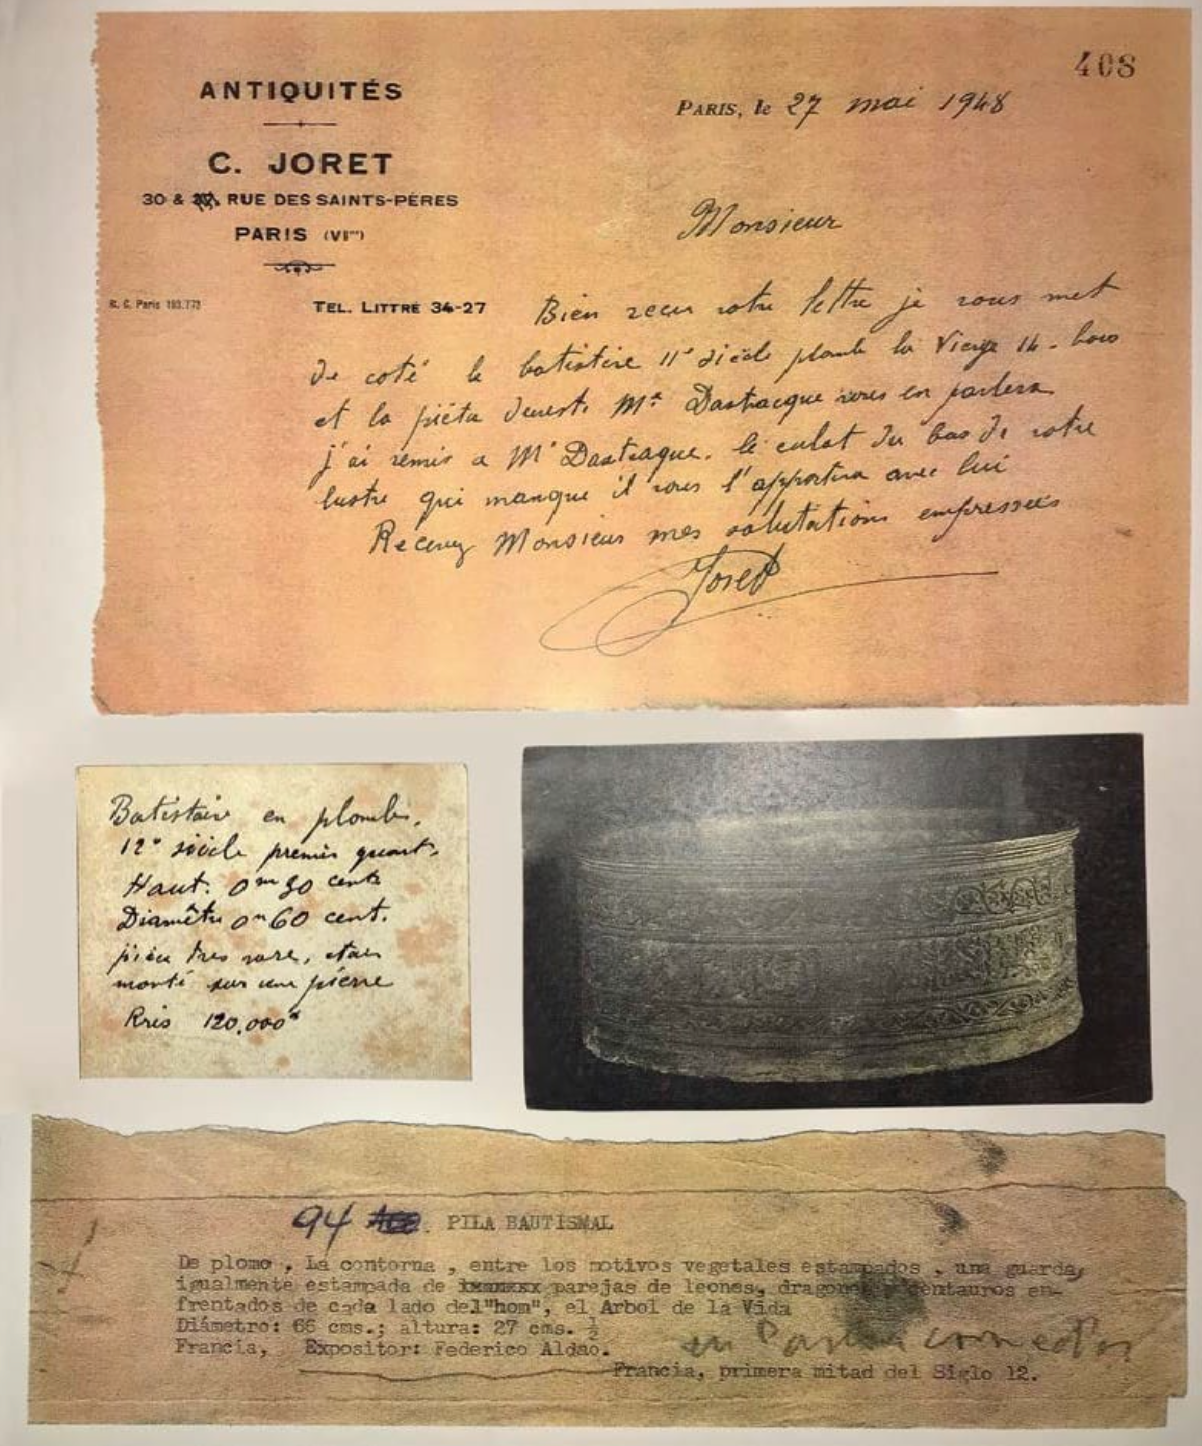 408
ANTIQUITÉS
C. JORET
30 & RUE DES SAINTS-PÈRES
PARIS (VIme)
R. C. Paris 193.772
TEL. LITTRÉ 34-27
PARIS, le 27 mai 1948
Monsieur
Bien recu votre lettre je vous met
de coté le batistere 11e siècle plomb la Vierge 14. bois
et la piéta Mr Dastracque vous en parlera
j'ai remis a Mr Dastraque. le culot du bas de votre
lustre qui manque il vous l'apportera avec lui
Recevez Monsieur mes salutations empressées
Joret
Batistaire en plomb.
12e siècle premier quart.
Haut. 0m 30 cent
Diamètre 0m 60 cent.
pièce tres rare, etait
monté sur une pierre
Prix 120.000
94 PILA BAUTISMAL
De plomo , La contorna , entre los motivos vegetales estampados , una guarda,
igualmente estampada de parejas de leones, dragones y centauros en-
frentados de cada lado del"hom", el Arbol de la Vida
Diámetro: 66 cms.; altura: 27 cms. ½
Francia, Expositor: Federico Aldao.
en comedor
Francia, primera mitad del Siglo 12.